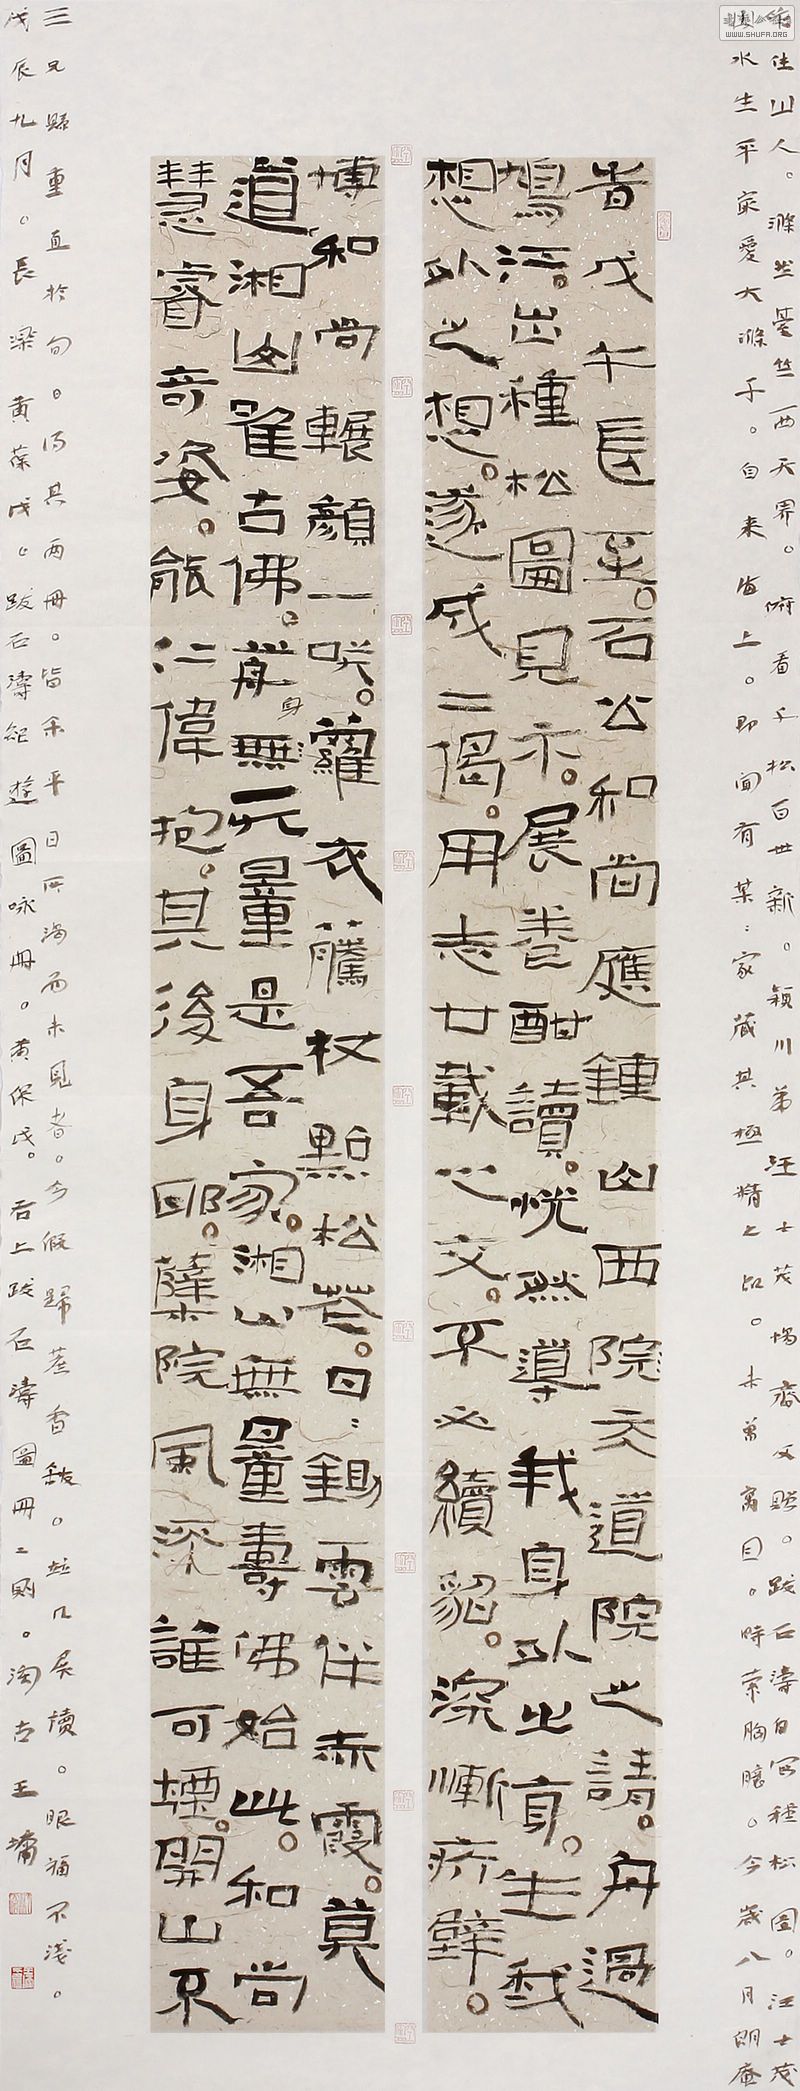 住山人。滌出臺竺西天界。府看千松百世新。潁川弟汪士茂惕齋父題。跋石濤自写種松圖。汪士茂
水生平最愛大滌子。自来海上。即聞有某〻家蔵其極精之品。未嘗寓目。時縈胸臆。今歲八月朗庵
昔戊午長至。石公和尚應鍾山西院方道院之請。舟過
鳩江。出種松圖見示。展卷酣讀。恍然導我身外出值。生我
想外之想。遂成二偈。用志廿載心交。不必續貂。深慚疥壁。
博和尚輾顔一咲。蘿衣藤杖點松花。日〻鋤雲伴赤霞。莫
道湘山崔古佛。前身無量是吾家。湘山無量壽佛始此。和尚
慧睿奇姿。能仁偉抱。其後身耶。蘗院風深誰可堙。開山不
三兄重直於。得其两冊。皆余平日所渴而未見者。今假歸蔗香館。凡展讀。眼福不淺。
戊辰九月。長梁黄葆戊。跋石濤紀遊圖咏冊。黄保戊。右上跋石濤圖冊二則。淘古王墉
WWW.SHUFA.ORG